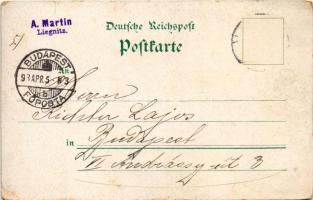 A. Martin
Liegnitz.
Deutsche Reichspost
Postkarte
BUDAPEST
FŐPOSTA
An
Herrn
Richter Lajos
in Budapest
Andrássy út 3